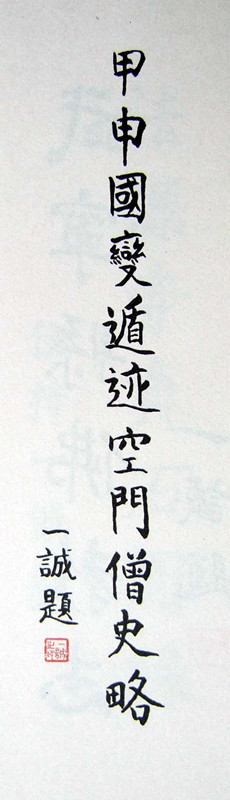 甲申國變遁迹空門僧史略
一誠題